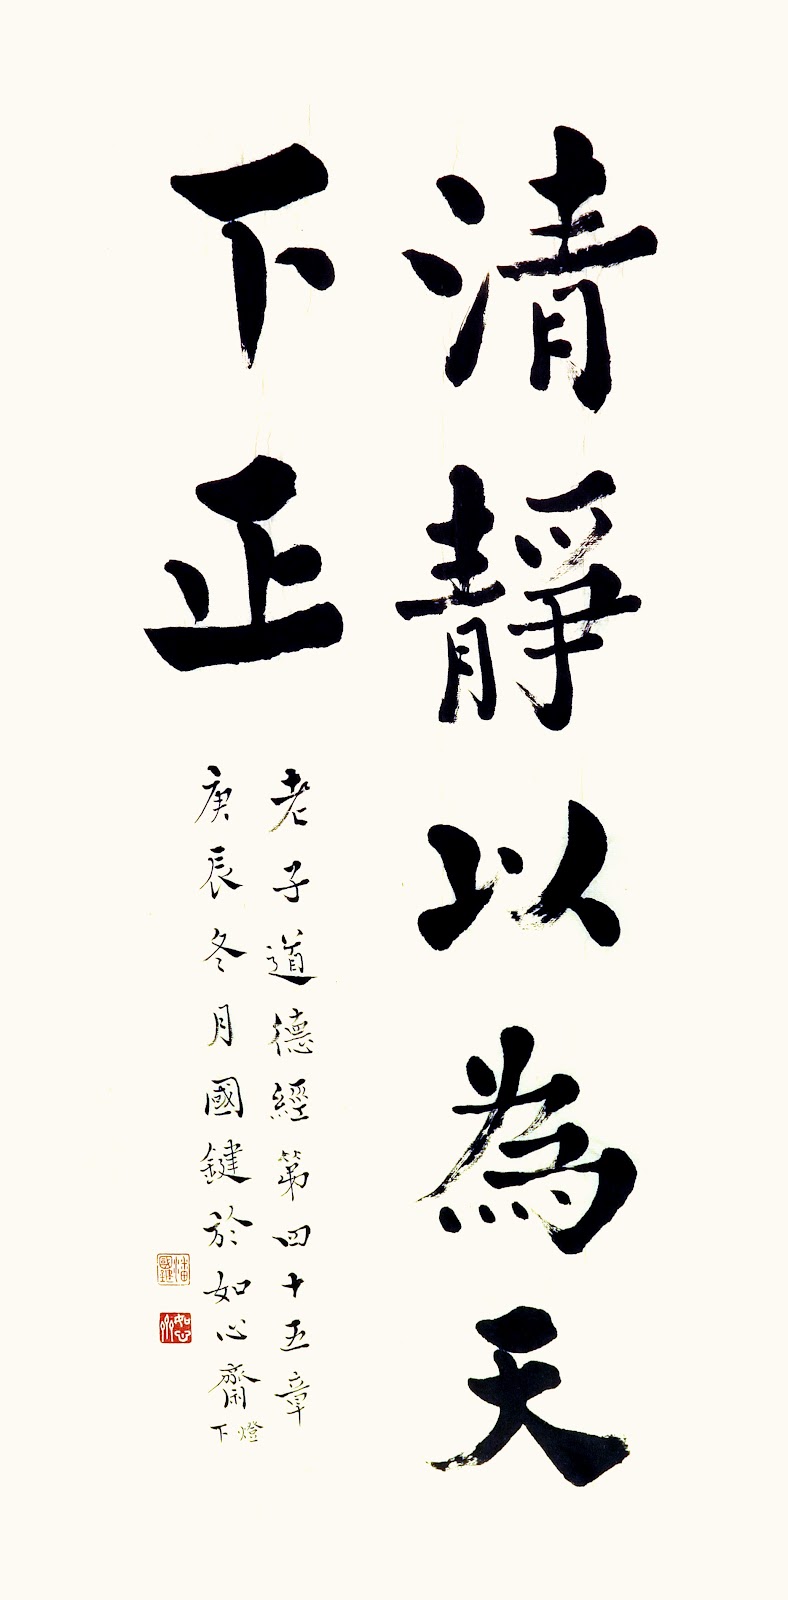 清靜以為天
下正
老子道德經第四十五章
庚辰冬月國鍵於如心齋燈下
潘國鍵